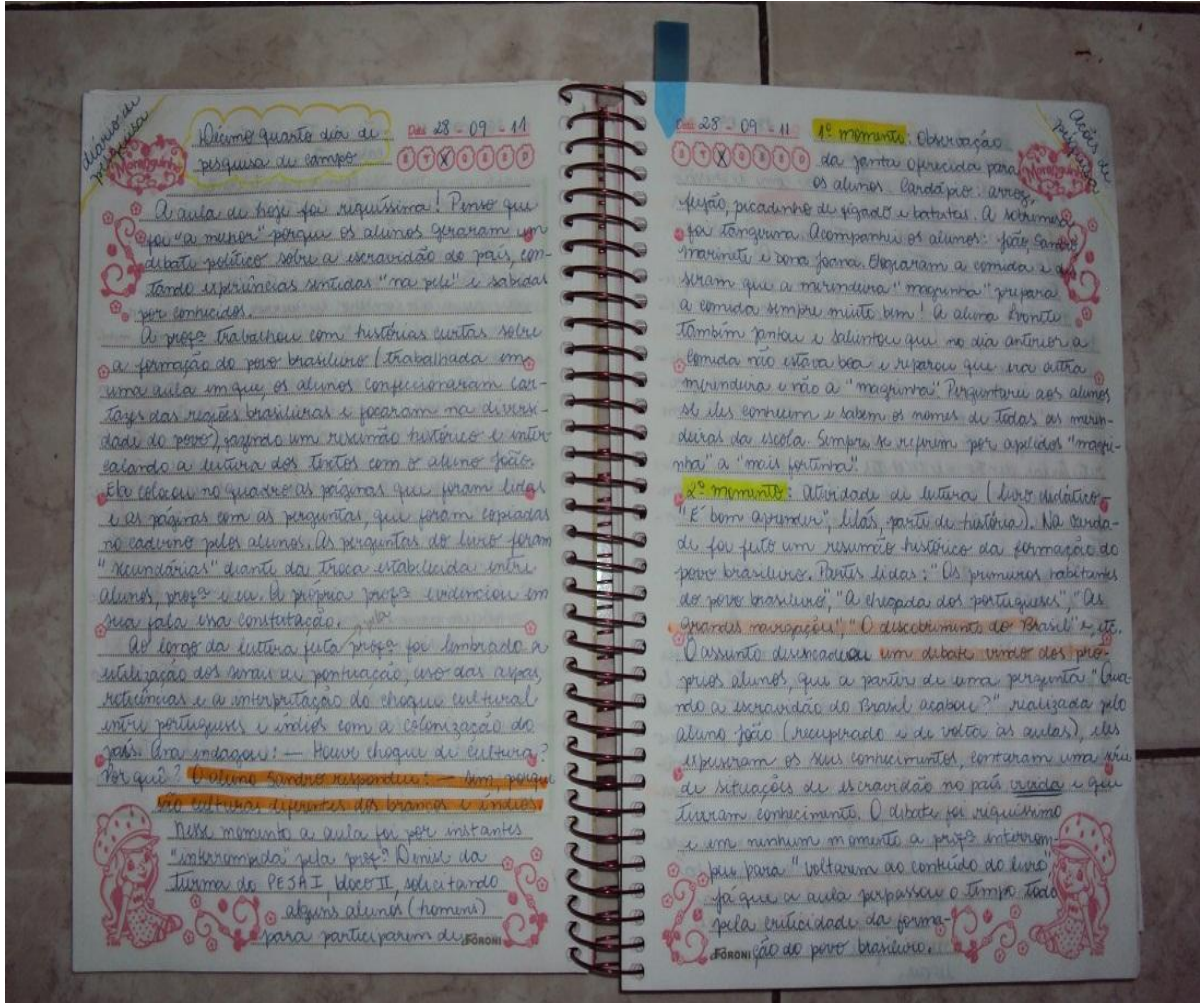 diário de
pesquisa
Décimo quarto dia de
pesquisa de campo
Data 28 - 09 - 11
Moranguinho
S T X Q S S D
A aula de hoje foi riquíssima! Penso que
foi "a melhor" porque os alunos geraram um
debate político sobre a escravidão do país, con-
tando experiências sentidas "na pele" e sabidas
por conhecidos.
A profª trabalhou com histórias curtas sobre
a formação do povo brasileiro (trabalhada em
uma aula em que, os alunos confeccionaram car-
tazes das regiões brasileiras e focaram na diversi-
dade do povo), fazendo um resumão histórico e inter
calando a leitura dos textos com o aluno João.
Ela colocou no quadro as páginas que foram lidas
e as páginas com as perguntas, que foram copiadas
no caderno pelos alunos. As perguntas do livro foram
"secundárias" diante da troca estabelecida entre
alunos, profª e eu. A própria profª evidenciou em
sua fala essa constatação.
pela
Ao longo da leitura feita profª foi lembrado a
utilização dos sinais de pontuação, uso das aspas,
reticências e a interpretação do choque cultural
entre portugueses e índios com a colonização do
país. Ana indagou: — Houve choque de cultura?
Por quê? O aluno Sandro respondeu: — Sim, porque
são culturas diferentes dos brancos e índios.
Nesse momento a aula foi por instantes
"interrompida" pela profª Denise da
turma do PEJA I, bloco II, solicitando
alguns alunos (homens)
para participarem de
FORONI
Data 28 - 09 - 11
S T X Q S S D
Moranguinho
Ações de
pesquisa
1º momento: Observação
da janta oferecida para
os alunos Cardápio: arroz,
feijão, picadinho de fígado e batatas. A sobremesa
foi tangerina. Acompanhei os alunos: João, Sandro
Marinete e dona Joana. Elogiaram a comida e di
seram que a merendeira "magrinha" prepara
a comida sempre muito bem! A aluna Ivonete
também jantou e salientou que no dia anterior a
comida não estava boa e reparou que era outra
merendeira e não a "magrinha". Perguntarei aos alunos
se eles conhecem e sabem os nomes de todas as meren-
deiras da escola. Sempre se referem por apelidos "magri-
nha" a "mais fortinha".
2º momento: Atividade de leitura (livro didático
"É bom aprender", lilás, parte de história). Na verda-
de foi feito um resumão histórico da formação do
povo brasileiro. Partes lidas: "Os primeiros habitantes
do povo brasileiro", "A chegada dos portugueses", "As
grandes navegações", "O descobrimento do Brasil" e, etc.
O assunto desencadeou um debate vindo dos pró-
prios alunos, que a partir de uma pergunta "Qua
ndo a escravidão do Brasil acabou?" realizada pelo
aluno João (recuperado e de volta às aulas), eles
expuseram os seus conhecimentos, contaram uma série
de situações de escravidão no país vivida e que
tiveram conhecimento. O debate foi riquíssimo
e em nenhum momento a profª interrom-
peu para "voltarem ao conteúdo do livro"
já que a aula perpassou o tempo todo
pela criticidade da forma-
ção do povo brasileiro.
FORONI